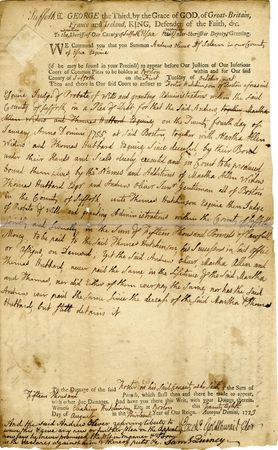 Suffolk ss. GEORGE the Third, by the Grace of GOD, of Great-Britain,
France and Ireland, KING, Defender of the Faith, &c.
To the Sheriff of Our County of Suffolk his Under-Sheriff or Deputy Greeting.
WE Command you that you Summon Andrew Oliver of Salem in our County
of Essex Esquire
(if he may be found in your Precinct) to appear before Our Justices of our Inferiour
Court of Common Pleas to be holden at Boston within and for Our said
County of Suffolk on the First Tuesday of October next
Then and there in Our said Court to answer to Foster Hutchinson of Boston aforesaid
Esquire Judge of Probate of Wills and granting Administrations within the
County of Suffolk in a Plea of Debt for that the said Andrew
Allen Widow and Thomas Hubbard Esquire on the Twenty fourth day
January Anno Domini 1755 at said Boston together with Martha Allen
Widow and Thomas Hubbard Esquire since deceased by their Bond
under their Hands and Seals duely executed and in Court to be produced
bound themselves by the Names and Additions of Martha Allen Widow
Thomas Hubbard Esqr and Andrew Oliver Gentleman all of Boston
in the County of Suffolk unto Thomas Hutchinson Esquire then Judge
of Probate of Wills and granting Administrations within the County of Suffolk
jointly and severally in the Sum of fifteen Thousand Pounds of lawful
Money to be paid to the said Thomas Hutchinson his Successors in said Office
or Assigns on Demand. Yet the said Andrew Oliver Martha Allen and
Thomas Hubbard never paid the same in the Lifetime of the said Martha
and Thomas, nor did either of them ever pay the same, nor has the said
Andrew ever paid the same since the decease of the said Martha & Thomas
Hubbard but still detains it
To the Damage of the said Foster in his said Capacity as he saith the Sum of
Fifteen Thousand Pounds, which shall then and there be made to appear,
with other due Damages. And have you there this Writ, with your Doings therein.
Witness Eliakim Hutchinson Esq; at Boston this Twenty Eighth
Day of August in the Thirteenth Year of Our Reign. Annoque Domini, 1773
Ezekl. Goldthwait Cler
And the said Andrew Oliver reserving liberty to
waive this & give any new or further plea on the appeal
now says he never promised the Plaintiff in manner & form
as he declares against him & thereof puts &c.